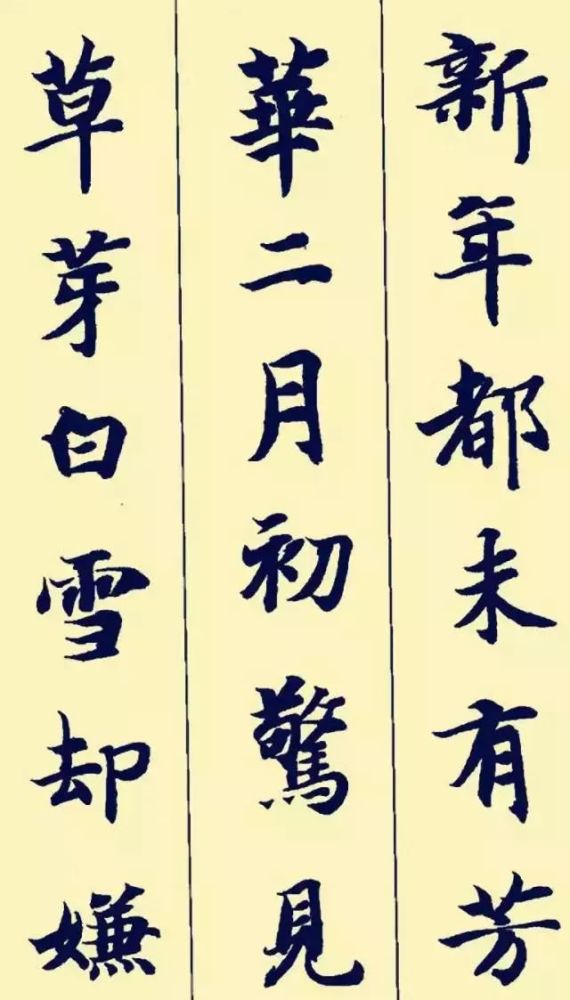 新年都未有芳
華二月初驚見
草芽白雪却嫌